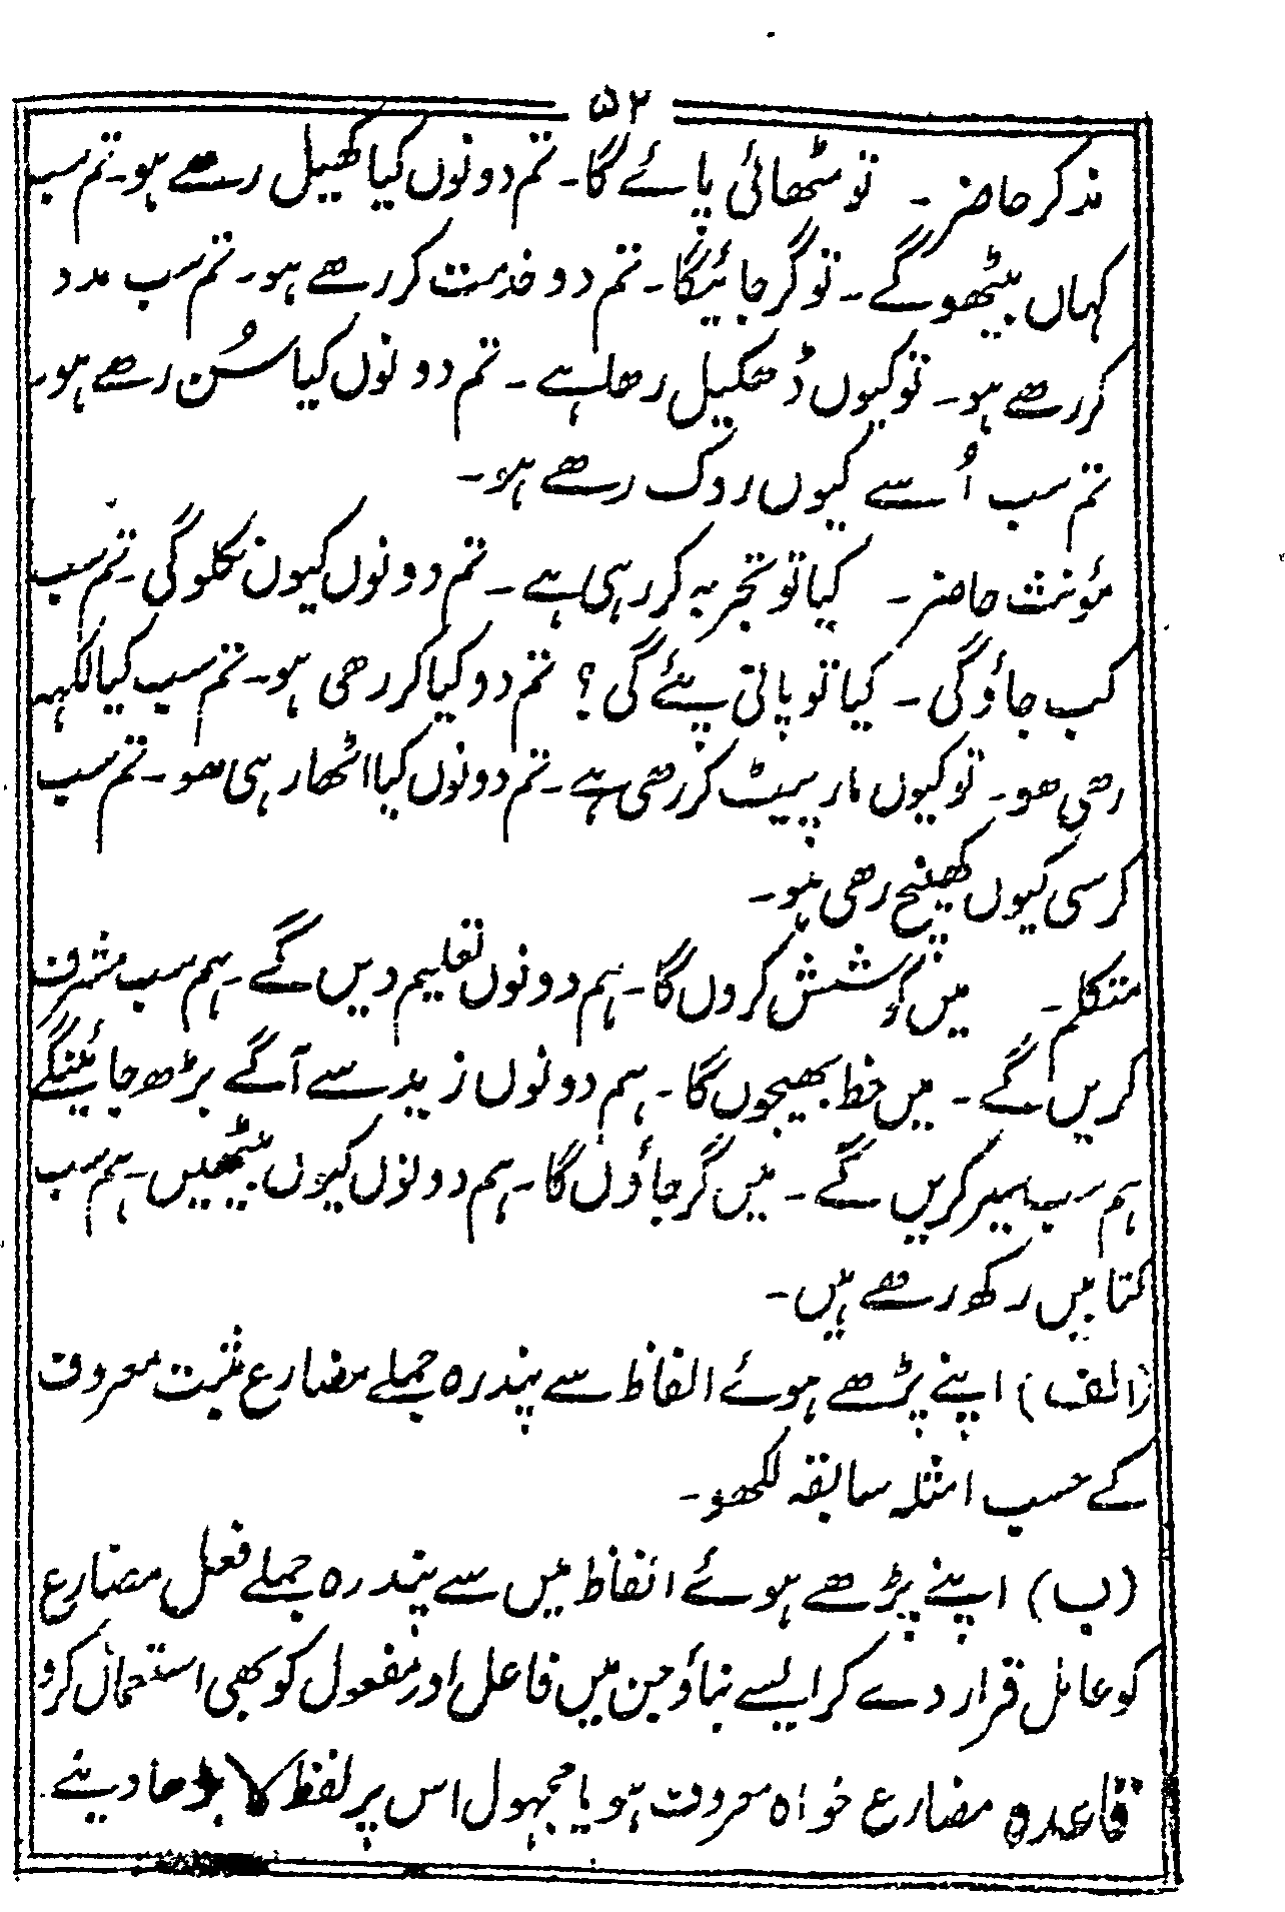 ۵۲
مذکر حاضر ۔ تو مٹھائی پائے گا۔ تم دونوں کیا کھیل رھے ہو۔ تم سب
کہاں بیٹھو گے ۔ تو گر جائیگا ۔ تم دو خدمت کر رھے ہو۔ تم سب مدد
کر رھے ہو۔ تو کیوں ڈھکیل رھا ہے ۔ تم دونوں کیا سُن رھے ہو۔
تم سب اُسے کیوں روک رھے ہو۔
مؤنث حاضر ۔ کیا تو تجربہ کر رہی ہے ۔ تم دونوں کیوں نکلو گی ۔ تم سب
کب جاؤ گی ۔ کیا تو پانی پئے گی ؟ تم دو کیا کر رھی ہو۔ تم سب کیا لکہہ
رھی ھو۔ تو کیوں مار پیٹ کر رھی ہے ۔ تم دونوں کیا اٹھا رہی ھو ۔ تم سب
کرسی کیوں کھینچ رھی ہو۔
متکلم ۔ میں کوشش کروں گا ۔ ہم دونوں تعلیم دیں گے ۔ ہم سب مشرف
کریں گے ۔ میں خط بھیجوں گا ۔ ہم دونوں زید سے آگے بڑھ جائینگے
ہم سب سیر کریں گے ۔ میں گر جاؤں گا ۔ ہم دونوں کیوں بیٹھیں ۔ ہم سب
کتابیں رکھ رھے ہیں ۔
(الف) اپنے پڑھے ہوئے الفاظ سے پندرہ جملے مضارع مثبت معروف
کے حسب امثلہ سابقہ لکھو ۔
(ب) اپنے پڑھے ہوئے الفاظ میں سے پندرہ جملے فعل مضارع
کو عامل قرار دے کر ایسے بناؤ جن میں فاعل اور مفعول کو بھی استعمال کرو
قاعدہ مضارع خواہ معروف ہو یا مجہول اس پر لفظ لا بڑھا دینے